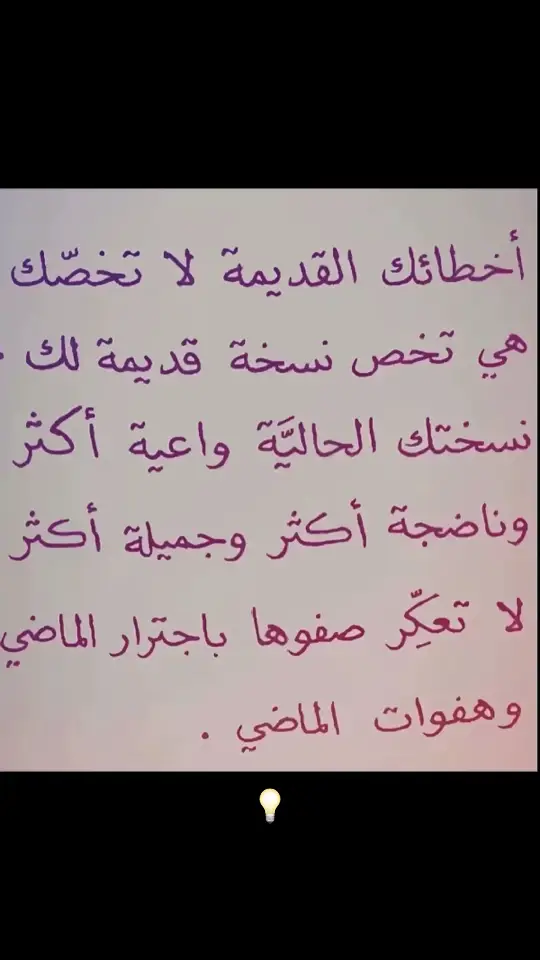 أخطائك القديمة لا تخصّك
هي تخص نسخة قديمة لك .
نسختك الحاليَّة واعية أكثر
وناضجة أكثر وجميلة أكثر
لا تعكِّر صفوها باجترار الماضي
وهفوات الماضي .